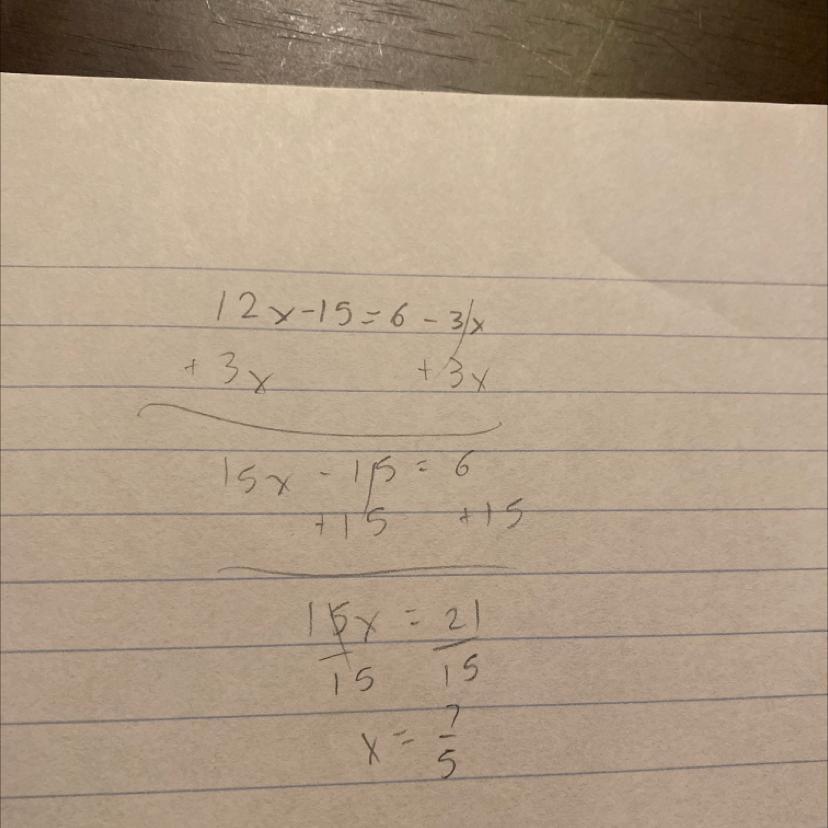 12x-15=6-3x
+3x +3x
15x-15=6
+15 +15
15x=21
15 15
x=7/5